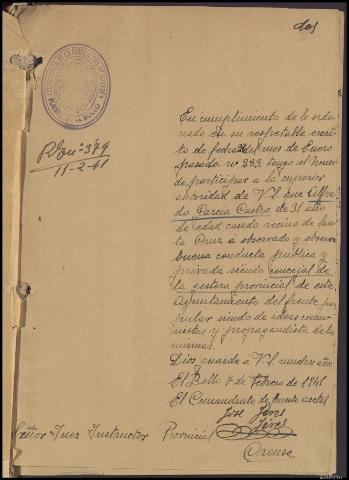 dos
Rº nº 379
11-2-41
En cumplimiento de lo orde-
nado en su respetable escri-
to de fecha del mes de Enero
pasado. nº 283 tengo el honor
de participar a la superior
autoridad de V.S. que Alfre-
do Garcia Castro de 31 año
de edad casado vecino de San-
ta Cruz á observado y observa
buena conducta publica y
privada siendo concejal de
la gestora provincial de este
Ayuntamiento del frente po-
pular siendo de ideas comu-
nistas y propagandista de la
mismas.
Dios guarde a V.S. muchos años
El Bollo 7 de Febrero de 1941
El Comandante de Puesto acctal
José
Señor Juez Instructor Provincial
Orense